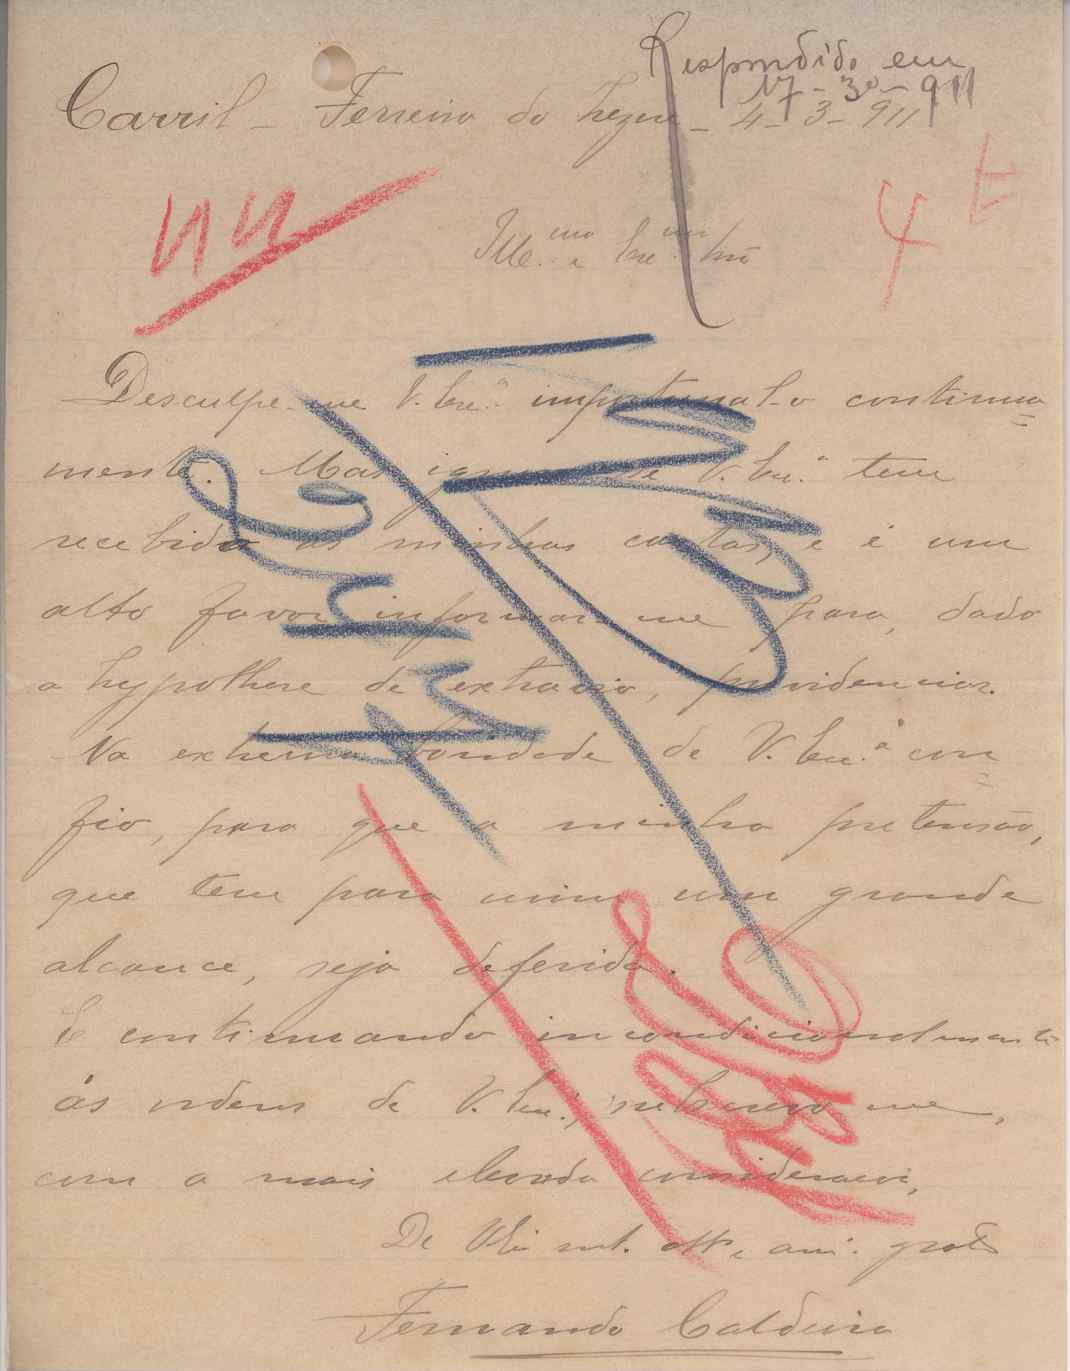 Respondido em
17-3º-911
Carril - Ferreira do Zezere - 4-3-911
4 E
Ill.mo e Exc.mo Snr
Desculpe-me V. Exc.ª importunal-o continua
mente. Mas ignoro se V. Exc.ª tem
recebido as minhas cartas, e é um
alto favor informar-me para, dado
a hypothese de extravio, providenciar.
Na extrema bondade de V. Exc.ª con
fio, para que a minha pretensão,
que tem para mim um grande
alcance, seja deferida.
E continuando incondicionalmente
ás ordens de V. Exc.ª, subscrevo-me,
com a mais elevada consideração,
De V. Exc.ª
Fernando Caldeira